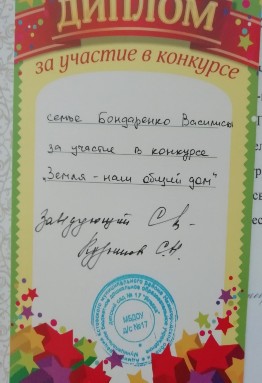 ДИПЛОМ
за участие в конкурсе
семье Бондаренко Василисы
за участие в конкурсе
„Земля - наш общий дом"
Заведующий
МБДОУ
д/с №17